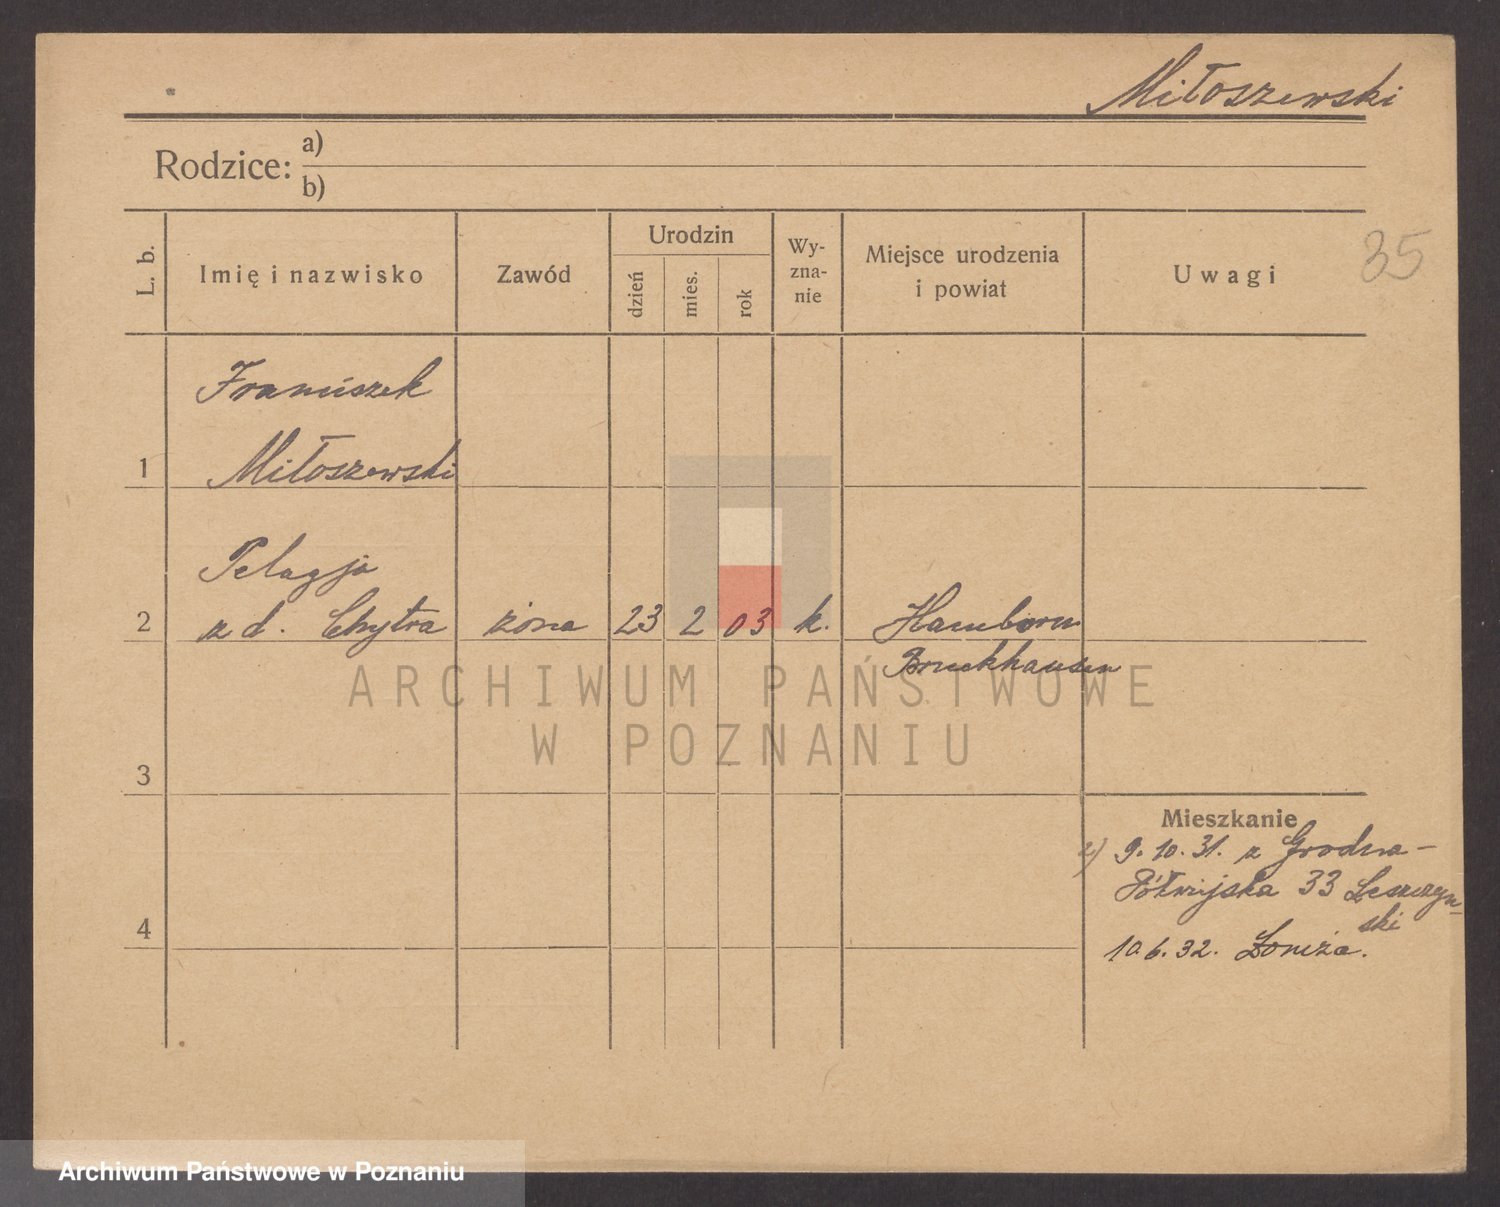 Miłoszewski
Rodzice:
a)
b)
L. b.
Imię i nazwisko
Zawód
Urodzin
dzień
mies.
rok
Wy-
zna-
nie
Miejsce urodzenia
i powiat
Uwagi
35
Franciszek
1 Miłoszewski
Pelagja
2 z d. Chytra żona 23 2 03 k. Hamborn
Bruckhausen
ARCHIWUM PAŃSTWOWE
W POZNANIU
3
Mieszkanie
2) 9.10.31. z Grodna -
Półwiejska 33 Leszczyn-
ski
4
10.6.32. Łomża.
Archiwum Państwowe w Poznaniu